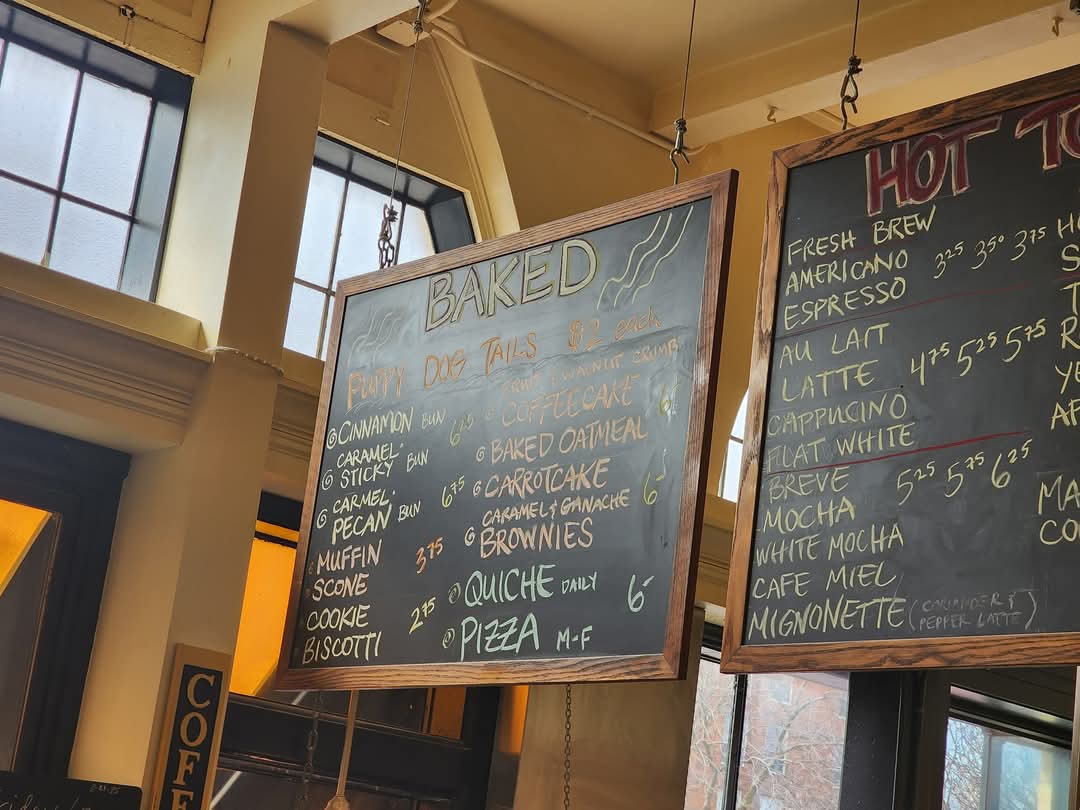 BAKED
PUPPY DOG TAILS $2 each
CINNAMON BUN 6.25
CARAMEL
STICKY BUN
CARMEL
PECAN BUN 6.75
MUFFIN
SCONE 3.75
COOKIE
BISCOTTI 2.75
FRUIT & WALNUT CRUMB
COFFEECAKE 6-
BAKED OATMEAL
CARROTCAKE
CARAMEL & GANACHE 6-
BROWNIES
QUICHE DAILY 6-
PIZZA M-F
HOT
FRESH BREW
AMERICANO 3.25 3.50 3.75
ESPRESSO
AU LAIT
LATTE 4.75 5.25 5.75
CAPPUCINO
FLAT WHITE
BREVE 5.25 5.75 6.25
MOCHA
WHITE MOCHA
CAFE MIEL
MIGNONETTE (CORIANDER &
PEPPER LATTE)
COFFE